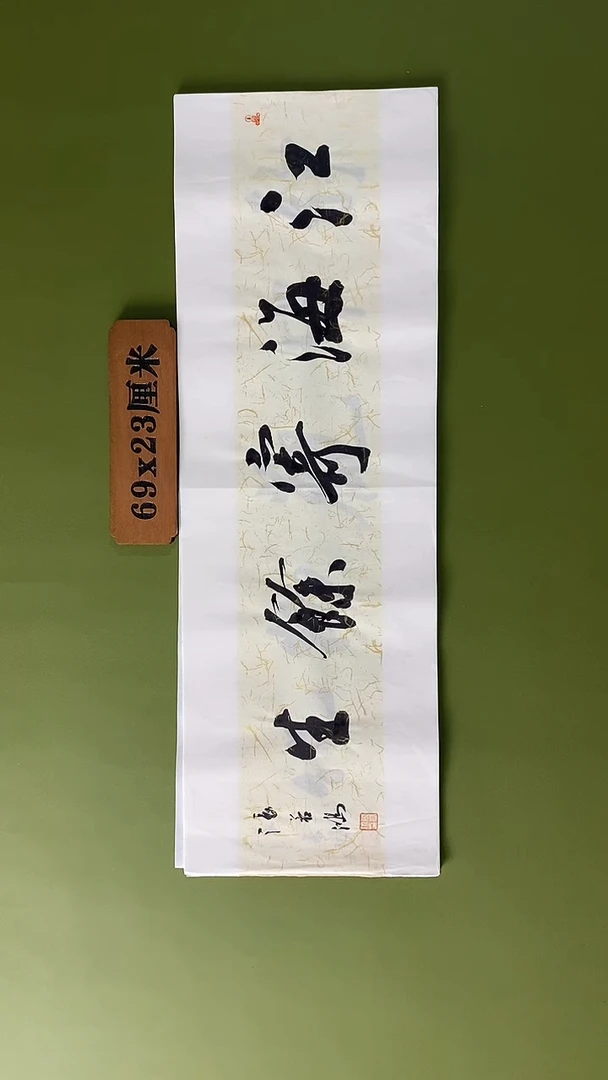 江海寄餘生
69x23厘米